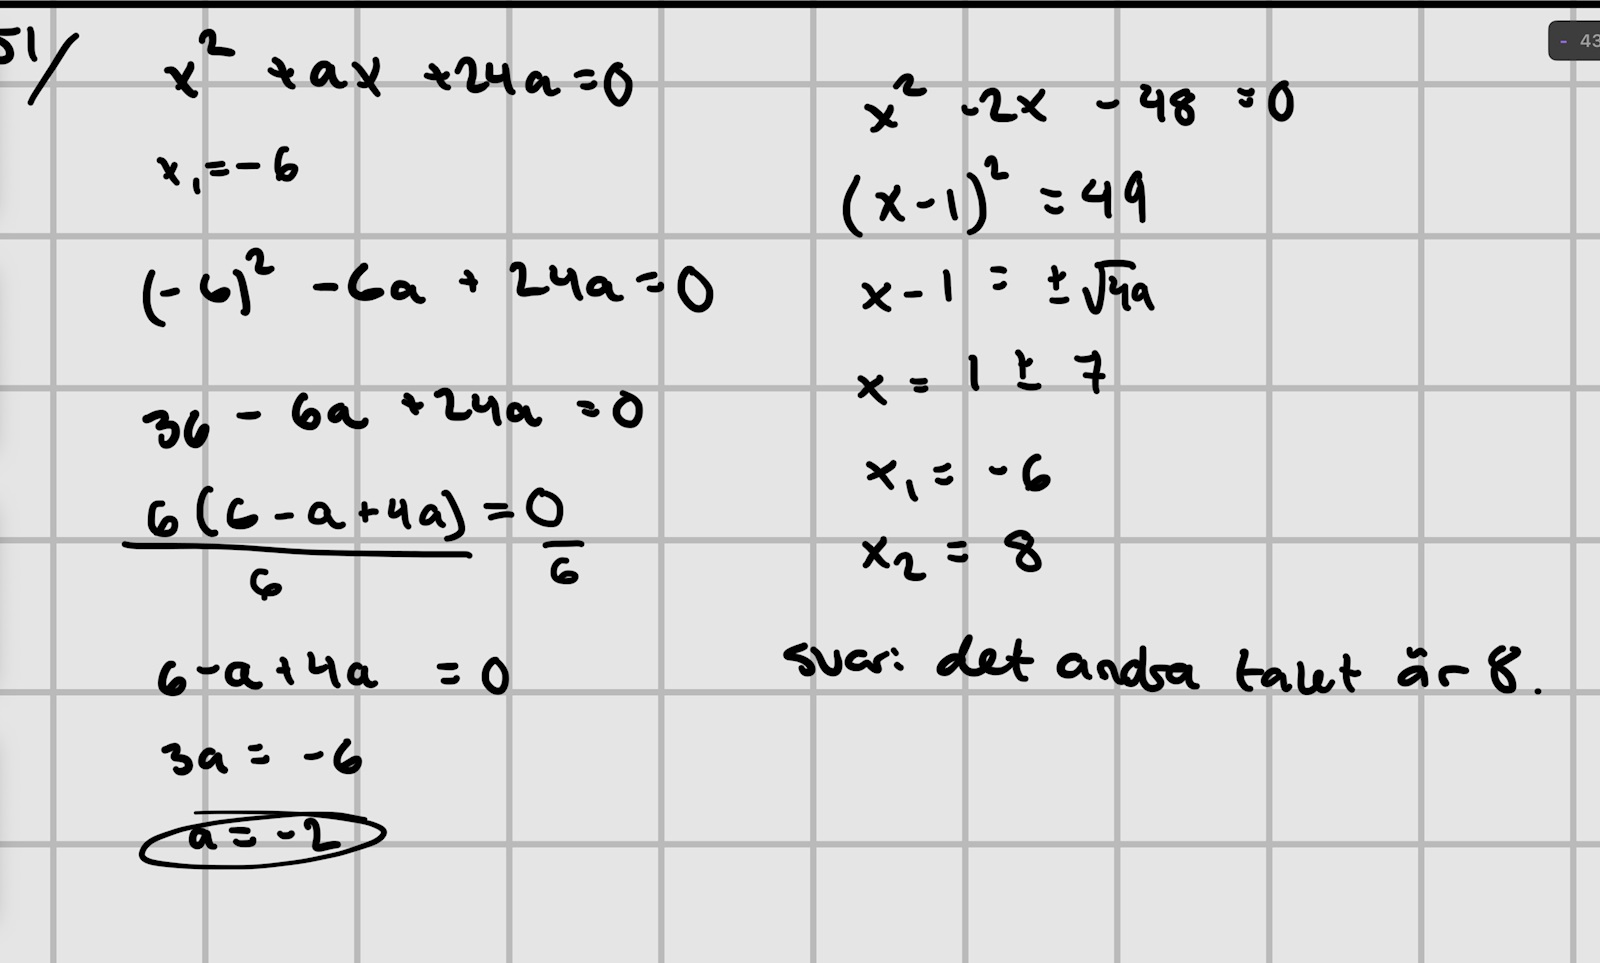 51/ x² + ax + 24a = 0
x₁ = -6
(-6)² - 6a + 24a = 0
36 - 6a + 24a = 0
6(6 - a + 4a) = 0
6 6
6 - a + 4a = 0
3a = -6
a = -2
x² - 2x - 48 = 0
(x - 1)² = 49
x - 1 = ± √49
x = 1 ± 7
x₁ = -6
x₂ = 8
svar: det andra talet är 8.
- 43